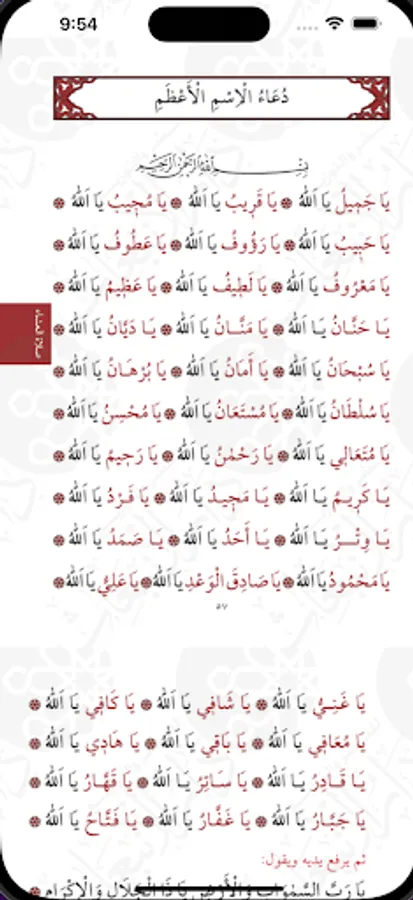 9:54
دُعَاءُ الْاِسْمِ الْأَعْظَمِ
بِسْمِ اللهِ الرَّحْمٰنِ الرَّحِيمِ
يَا جَمِيلُ يَا اَللهُ ❁ يَا قَرِيبُ يَا اَللهُ ❁ يَا مُجِيبُ يَا اَللهُ ❁
يَا حَبِيبُ يَا اَللهُ ❁ يَا رَؤُوفُ يَا اَللهُ ❁ يَا عَطُوفُ يَا اَللهُ ❁
يَا مَعْرُوفُ يَا اَللهُ ❁ يَا لَطِيفُ يَا اَللهُ ❁ يَا عَظِيمُ يَا اَللهُ ❁
يَا حَنَّانُ يَا اَللهُ ❁ يَا مَنَّانُ يَا اَللهُ ❁ يَا دَيَّانُ يَا اَللهُ ❁
صلاة العشاء
يَا سُبْحَانُ يَا اَللهُ ❁ يَا أَمَانُ يَا اَللهُ ❁ يَا بُرْهَانُ يَا اَللهُ ❁
يَا سُلْطَانُ يَا اَللهُ ❁ يَا مُسْتَعَانُ يَا اَللهُ ❁ يَا مُحْسِنُ يَا اَللهُ ❁
يَا مُتَعَالِي يَا اَللهُ ❁ يَا رَحْمٰنُ يَا اَللهُ ❁ يَا رَحِيمُ يَا اَللهُ ❁
يَا كَرِيمُ يَا اَللهُ ❁ يَا مَجِيدُ يَا اَللهُ ❁ يَا فَرْدُ يَا اَللهُ ❁
يَا وِتْرُ يَا اَللهُ ❁ يَا أَحَدُ يَا اَللهُ ❁ يَا صَمَدُ يَا اَللهُ ❁
يَا مَحْمُودُ يَا اَللهُ ❁ يَا صَادِقَ الْوَعْدِ يَا اَللهُ ❁ يَا عَلِيُّ يَا اَللهُ ❁
٥٧
يَا غَنِيُّ يَا اَللهُ ❁ يَا شَافِي يَا اَللهُ ❁ يَا كَافِي يَا اَللهُ ❁
يَا مُعَافِي يَا اَللهُ ❁ يَا بَاقِي يَا اَللهُ ❁ يَا هَادِي يَا اَللهُ ❁
يَا قَادِرُ يَا اَللهُ ❁ يَا سَاتِرُ يَا اَللهُ ❁ يَا قَهَّارُ يَا اَللهُ ❁
يَا جَبَّارُ يَا اَللهُ ❁ يَا غَفَّارُ يَا اَللهُ ❁ يَا فَتَّاحُ يَا اَللهُ ❁
ثم يرفع يديه ويقول:
يَا رَبَّ السَّمٰوَاتِ وَالْأَرْضِ يَا ذَا الْجَلَالِ وَالْإِكْرَامِ ❁